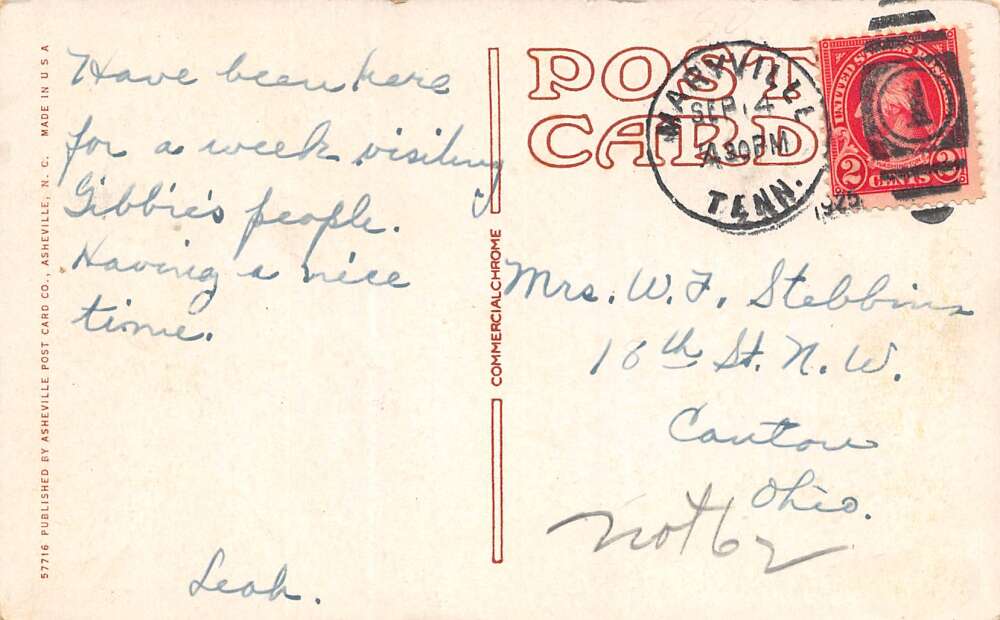 57716 PUBLISHED BY ASHEVILLE POST CARD CO., ASHEVILLE, N. C. MADE IN U S A
Have been here
for a week visiting
Gibbie's people.
Having a nice
time.
Leah.
COMMERCIALCHROME
POST
CARD
MARYVILLE
SEP 14
4 30 PM
1925
TENN.
UNITED STATES POSTAGE
2 CENTS 2
1
Mrs. W. F. Stebbins
18th St. N. W.
Canton
Ohio.